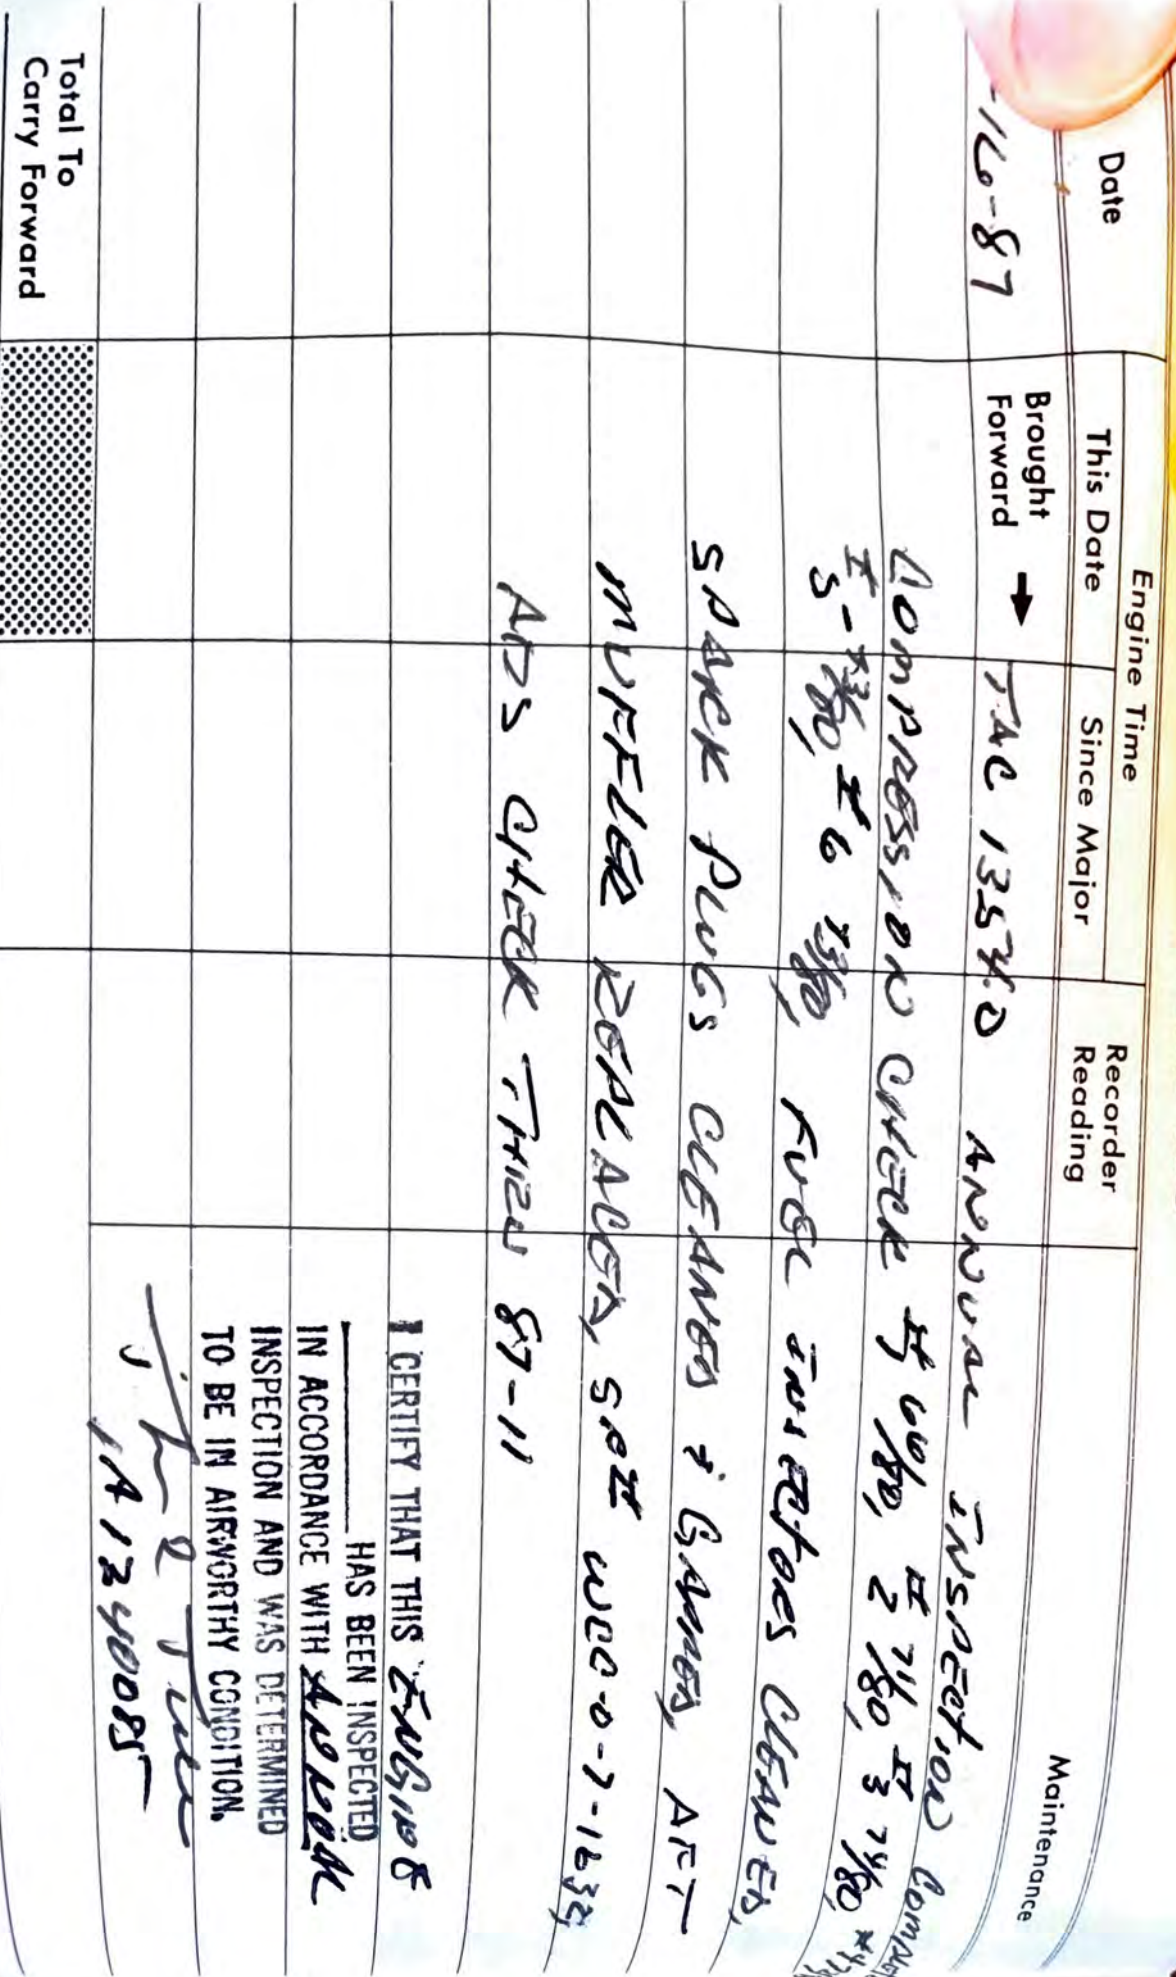 Date
Engine Time
This Date
Since Major
Recorder
Reading
Maintenance
Brought
Forward
-16-87 TAC 1354.0 ANNUAL INSPECTION
COMPRESSION CHECK #1 66/80, # 2 71/80, # 3 74/80, #4
# 5 - 73/80, # 6 73/80, FUEL INJECTORS CLEANED,
SPARK PLUGS CLEANED & GAPPED, AFT
MUFFLER REPLACED, SP#
ADS CHECK THRU 87-11
I CERTIFY THAT THIS ENGINE
HAS BEEN INSPECTED
IN ACCORDANCE WITH ANNUAL
INSPECTION AND WAS DETERMINED
TO BE IN AIRWORTHY CONDITION.
IA 1240085
Total To
Carry Forward